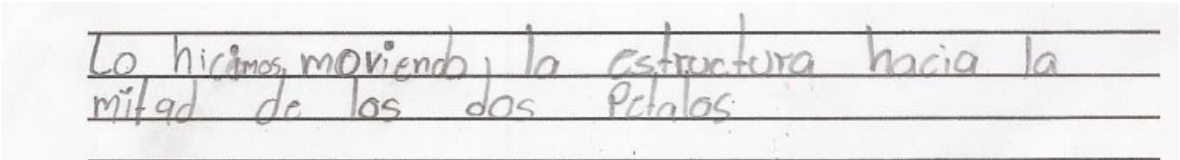 Lo hicimos, moviendo, la estructura hacia la
mitad de los dos Petalos.